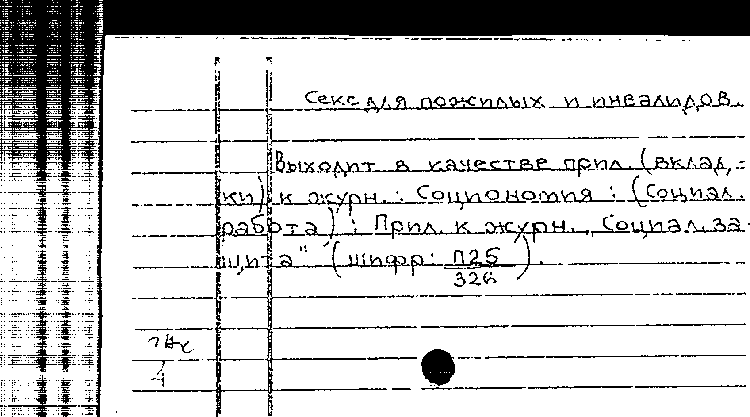 Секс для пожилых и инвалидов.
Выходит в качестве прил. (вклад,-
ки) к журн.: Социономия: (Социал.
работа): Прил. к журн. „Социал. за-
щита" (шифр: П25
326).